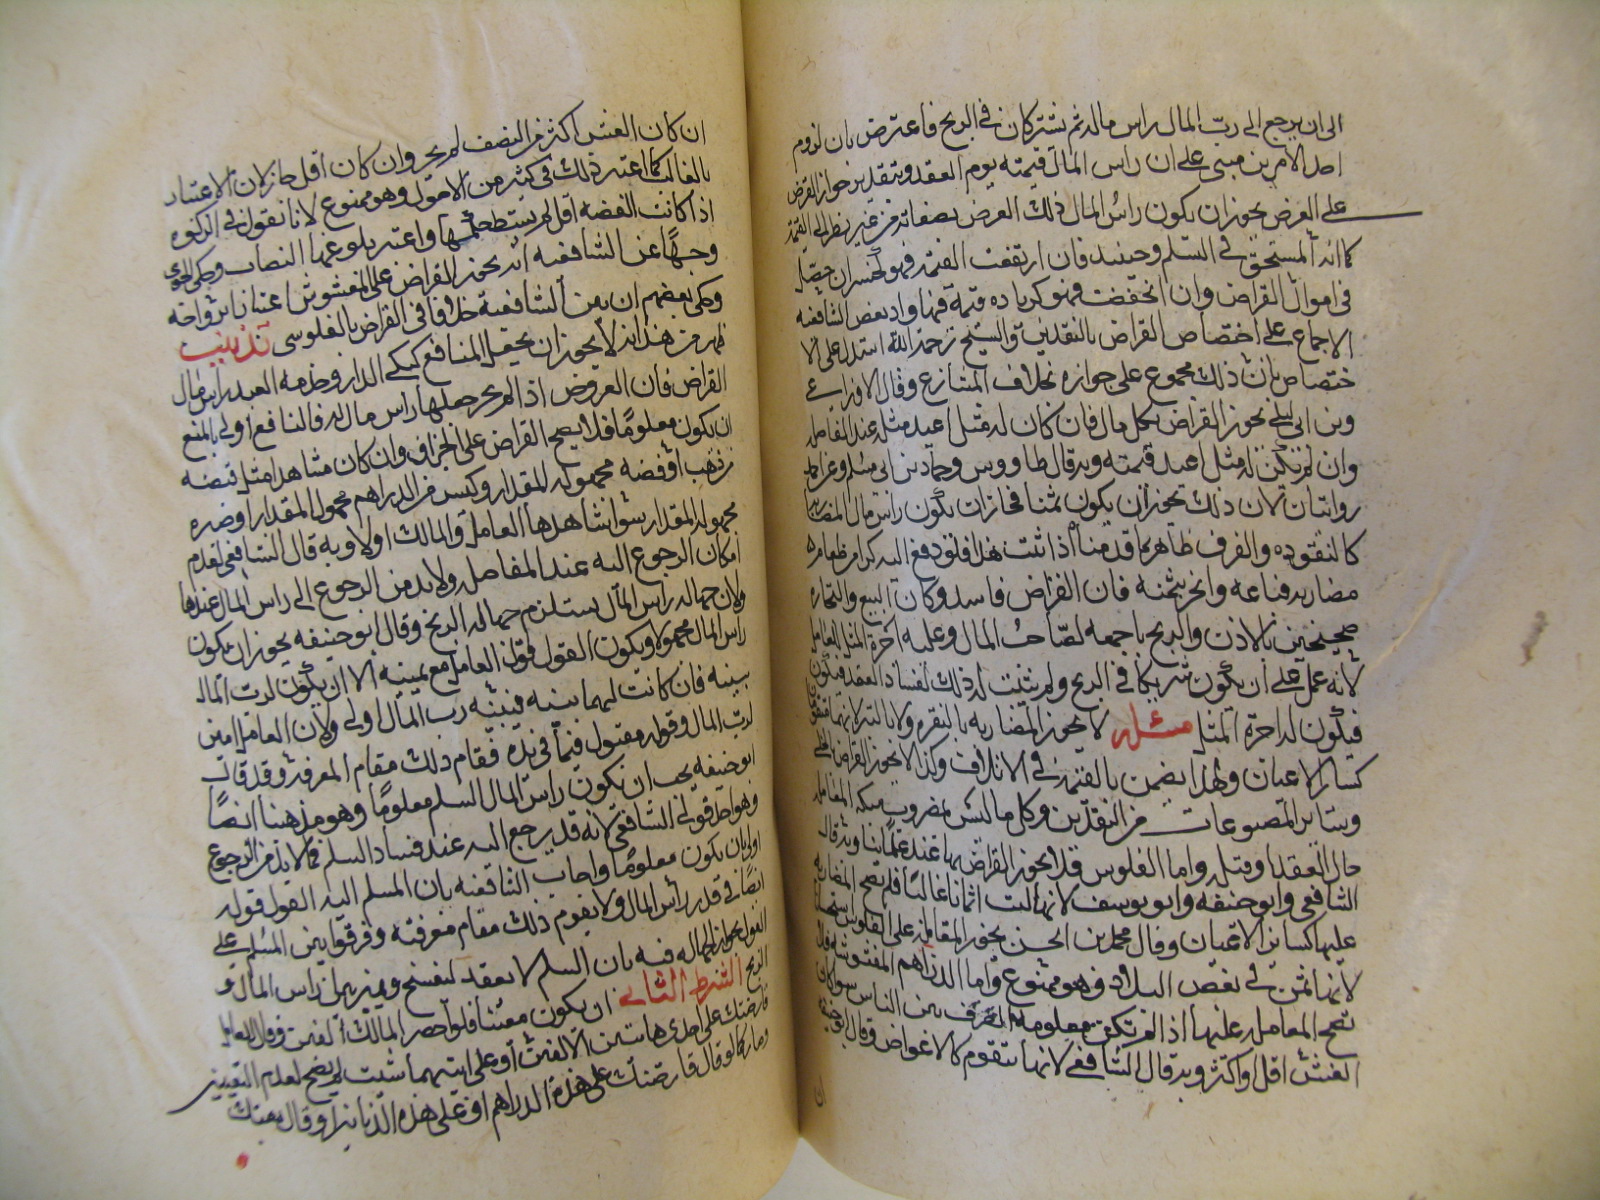 الى ان يرجع الى ربّ المال راس ماله ثم يشتركان في الربح فاعترض بان لزوم
احد الامرين مبنى على ان راس المال قيمته يوم العقد وبتقدير جواز القراض
على العرض يجوز ان يكون راس المال ذلك العرض بصفاته من غير نظر الى القيمة
كما انه المستحق في السلم وحينئذ فان ارتفعت القيمة فهو كخسران حصل
في اموال القراض وان انخفضت فهو كزيادة قيمة فيها وادعى بعض الشافعية
الاجماع على اختصاص القراض بالنقدين والشيخ رحمه الله استدل على الا
ختصاص بان ذلك مجموع على جوازه بخلاف المتنازع وقال الاوزاعي
وبن ابي ليلى يجوز القراض بكل مال فان كان له مثل اعيد مثله عند المفاصلة
وان لم يكن له مثل اعيد قيمته وبه قال طاووس وحماد بن ابي وعن احمد
روايتان لان ذلك يجوز ان يكون ثمنا فجاز ان يكون راس مال المضاربة
كالنقود والفرق ظاهر بما قدمناه اذا ثبت هذا فلو دفع اليه كرا من طعام
مضاربة فباعه واتجر بثمنه فان القراض فاسد وكان البيع والتجارة
صحيحين بالاذن والربح باجمعه لصاحب المال وعليه اجرة المثل للعامل
لانه عمل على ان يكون شريكا في الربح ولم يثبت له ذلك لفساد العقد فيكون
فيكون له اجرة المثل مسئلة لا يجوز المضاربة بالنقرة ولا بالتبر لانها متقومة
كسائر الاعيان ولهذا يضمن بالقيمة في الاتلاف وكذا لا يجوز القراض بالحلي
وسائر المصوغات من النقدين وكل ما ليس بمضروب المعاملة
حال العقد او قبله واما الفلوس فلا يجوز القراض بها عند علمائنا وبه قال
الشافعي وابو حنيفه وابو يوسف لانها ليست اثمانا غالبا فلم يصح المضاربة
عليها كسائر الاعيان وقال محمد بن الحسن يجوز المقاملة على الفلوس استحسانا
لانها ثمن في بعض البلاد وهو ممنوع واما الدراهم المغشوشة فلا
تصح المعاملة عليها اذا لم تكن معلومة الصرف بين الناس سوا كان
الغش اقل او اكثر وبه قال الشافعي لانها متقوم كالاعواض وقال ابو حنيفة
ان
ان كان الغش اكثر من النصف لم يجز وان كان اقل جاز لان الاعتبار
بالغالب كما اعتبر ذلك في كثير من الاصول وهو ممنوع لانا نقول في الزكوة
اذا كانت الفضه اقل لم يسقط حكمها واعتبر بلوغها النصاب وحكى الجويني
وجها عن الشافعيه انه يجوز القراض على المغشوش اعتبارا برواجه
وحكى بعضهم ان بين الشافعية خلافا في القراض بالفلوس تذنيب
ظهر من هذا انه لا يجوز ان يجعل المنافع كسكنى الدار وخدمة العبد راس مال
القراض فان العروض اذا لم يجز جعلها راس مال له فالمنافع اولى بالمنع
ان يكون معلوما فلا يصح القراض على الجزاف وان كان مشاهدا مثل قبضه
ذهب او فضه مجهولة المقدار وكيس من الدراهم مجهول المقدار وصره
مجهولة المقدار سوا شاهدها العامل والمالك او لا وبه قال الشافعي لعدم
امكان الرجوع اليه عند المفاصلة ولا بد من الرجوع الى راس المال عندها
ولان جهالة راس المال يستلزم جهالة الربح وقال ابو حنيفه يجوز ان يكون
راس المال مجهولا ويكون القول قول العامل مع يمينه الا ان يكون لرب المال
بينه فان كانت لهما بينه فبينه رب المال اولى ولان العامل امين
لرب المال وقوله مقبول فيما في يده فقام ذلك مقام المعرفة وقد قال
ابو حنيفه يجب ان يكون راس المال السلم معلوما وهو مذهبنا ايضا
وهو احد قولي الشافعي لانه قد يرجع اليه عند فساد السلم فما لا بد من الرجوع
اولى بان يكون معلوما واجاب الشافعيه بان المسلم اليه القول قوله
ايضا في قدر راس المال ولا يقوم ذلك مقام معرفته وفرقوا بين المسلم على
القول بجواز الجهالة فيه بان السلم لا يعقد ليفسخ ويميز بين راس المال و
الربح الشرط الثالث ان يكون معينا فلو احضر المالك الفين وقال للعامل
قارضتك على احدى هاتين الالفين او على ايتهما شئت لم يصح لعدم التعيين
وصار كما لو قال قارضتك على هذه الدراهم او على هذه الدنانير او قال بعتك